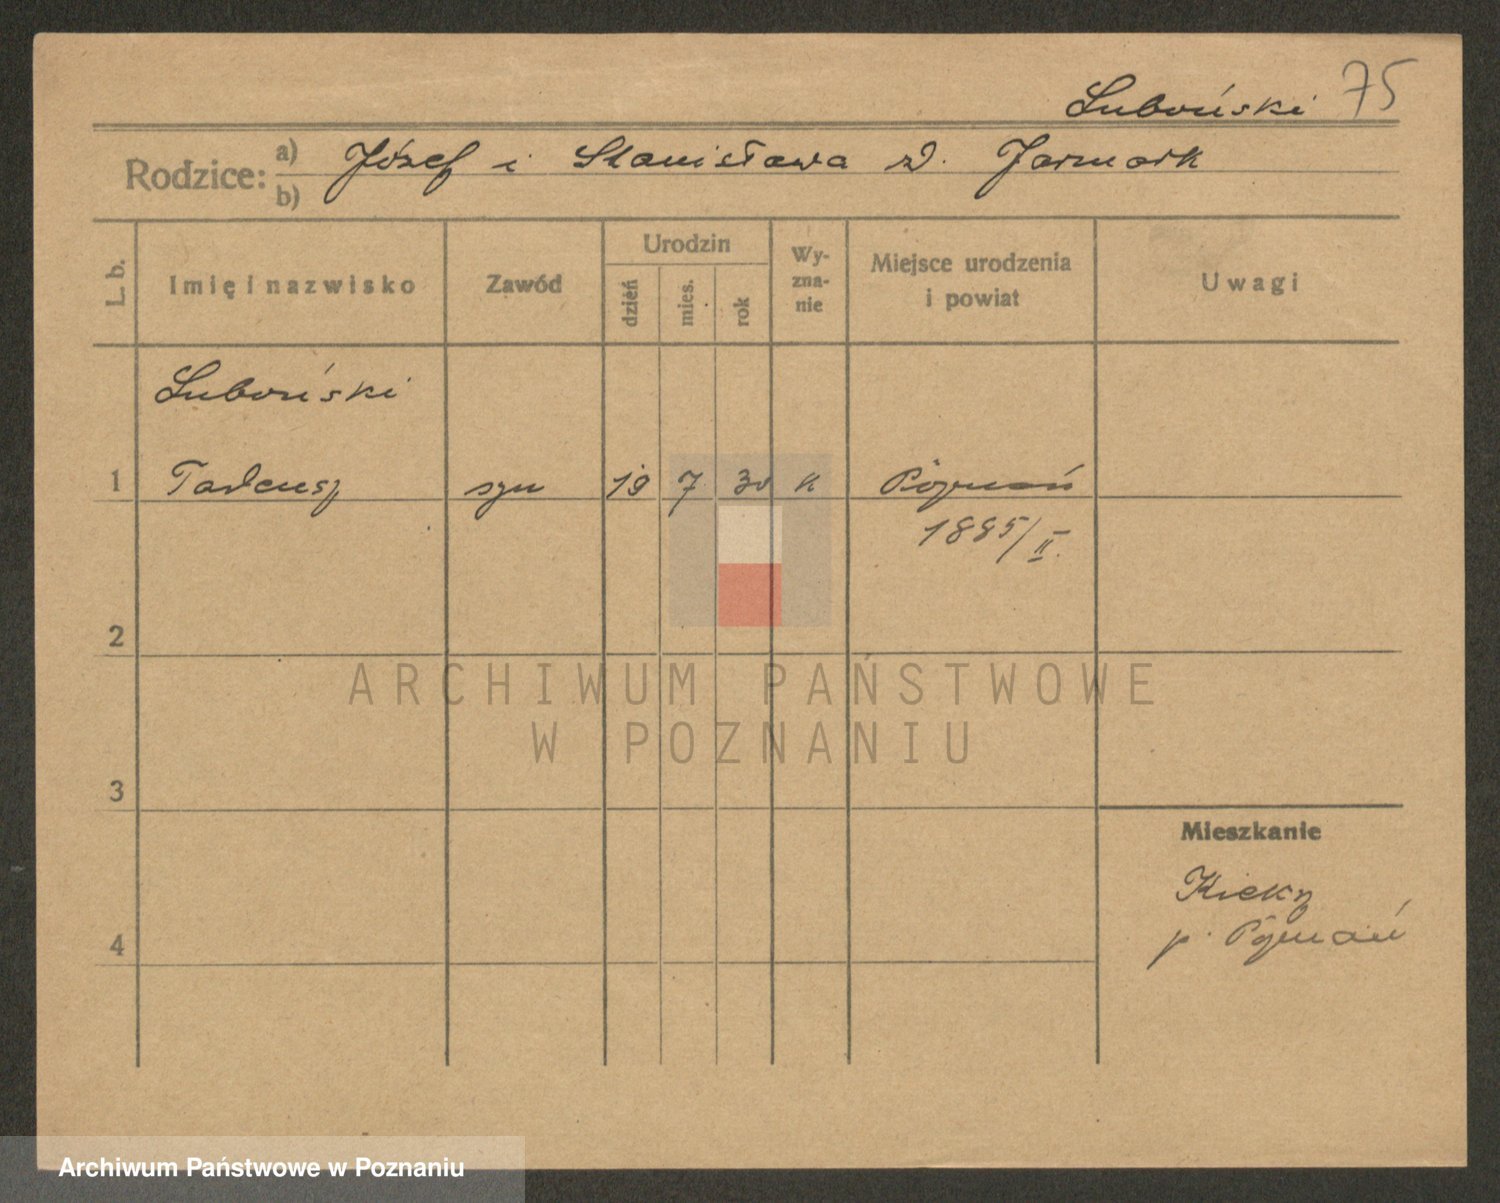 Luboński 75
Rodzice: a) Józef i Stanisława z d. Jarmark
b)
L. b. Imię i nazwisko Zawód Urodzin dzień mies. rok Wy-zna-nie Miejsce urodzenia i powiat Uwagi
Luboński
1 Tadeusz syn 19 7 30 k Poznań
1885/II.
2
ARCHIWUM PAŃSTWOWE
W POZNANIU
3
Mieszkanie
Kiekrz
p. Poznań
4
Archiwum Państwowe w Poznaniu